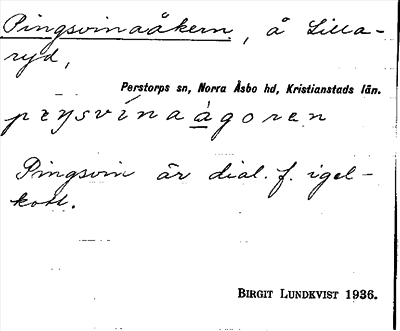 Pingsvinaåkern, å Lilla-
ryd,
Perstorps sn, Norra Åsbo hd, Kristianstads län.
Pingsvin är dial. f. igel-
kott.
BIRGIT LUNDKVIST 1936.